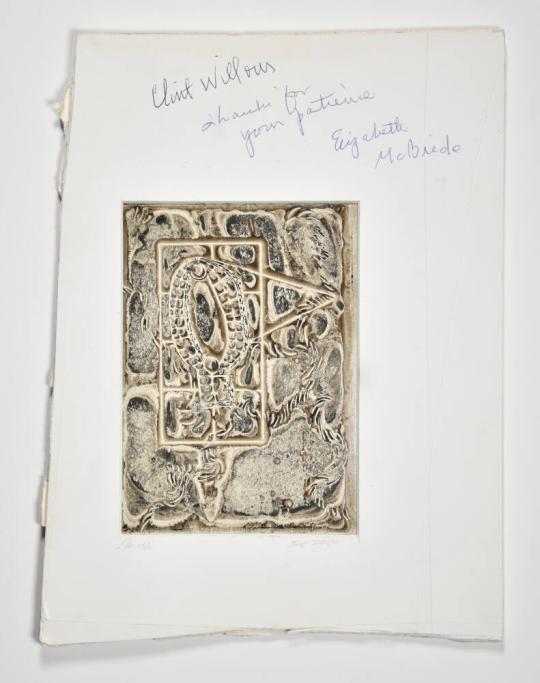 Clint Willour
Thanks for
your patience
Elizabeth
McBride